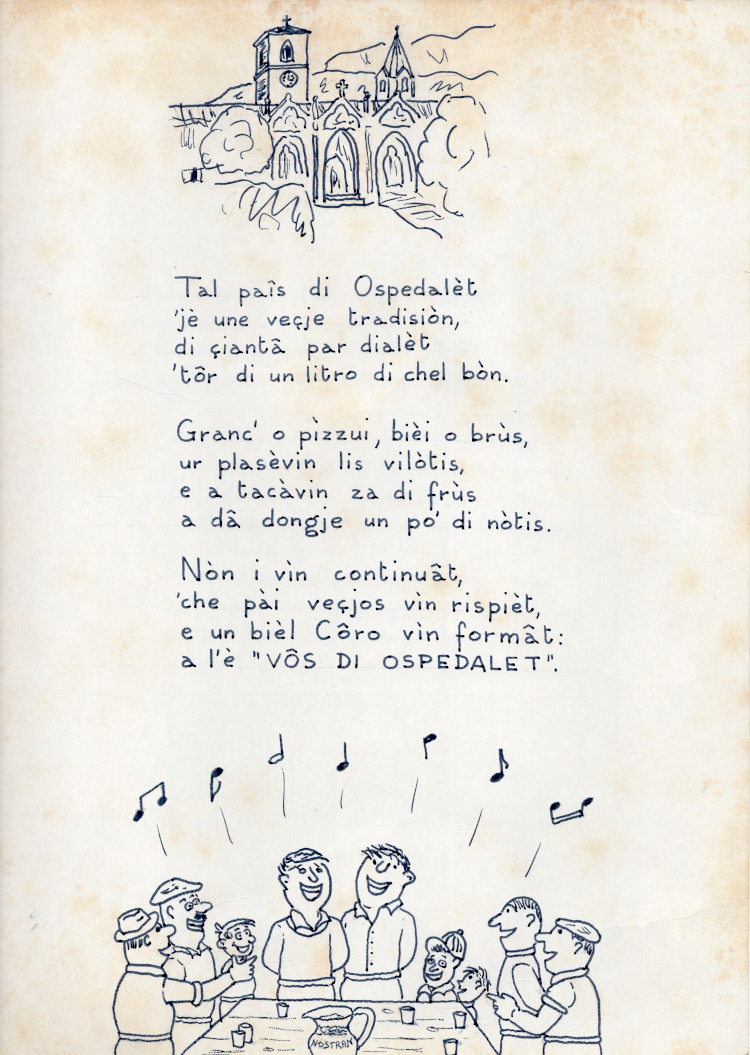 Tal paîs di Ospedalèt
'jè une veçje tradisiòn,
di çiantâ par dialèt
'tôr di un litro di chel bòn.
Granc' o pìzzui, bièi o brùs,
ur plasèvin lis vilòtis,
e a tacàvin za di frùs
a dâ dongje un po' di nòtis.
Nòn i vìn continuât,
'che pài veçjos vìn rispièt,
e un bièl Côro vìn formât:
a l'è "VÔS DI OSPEDALET".
NOSTRAN